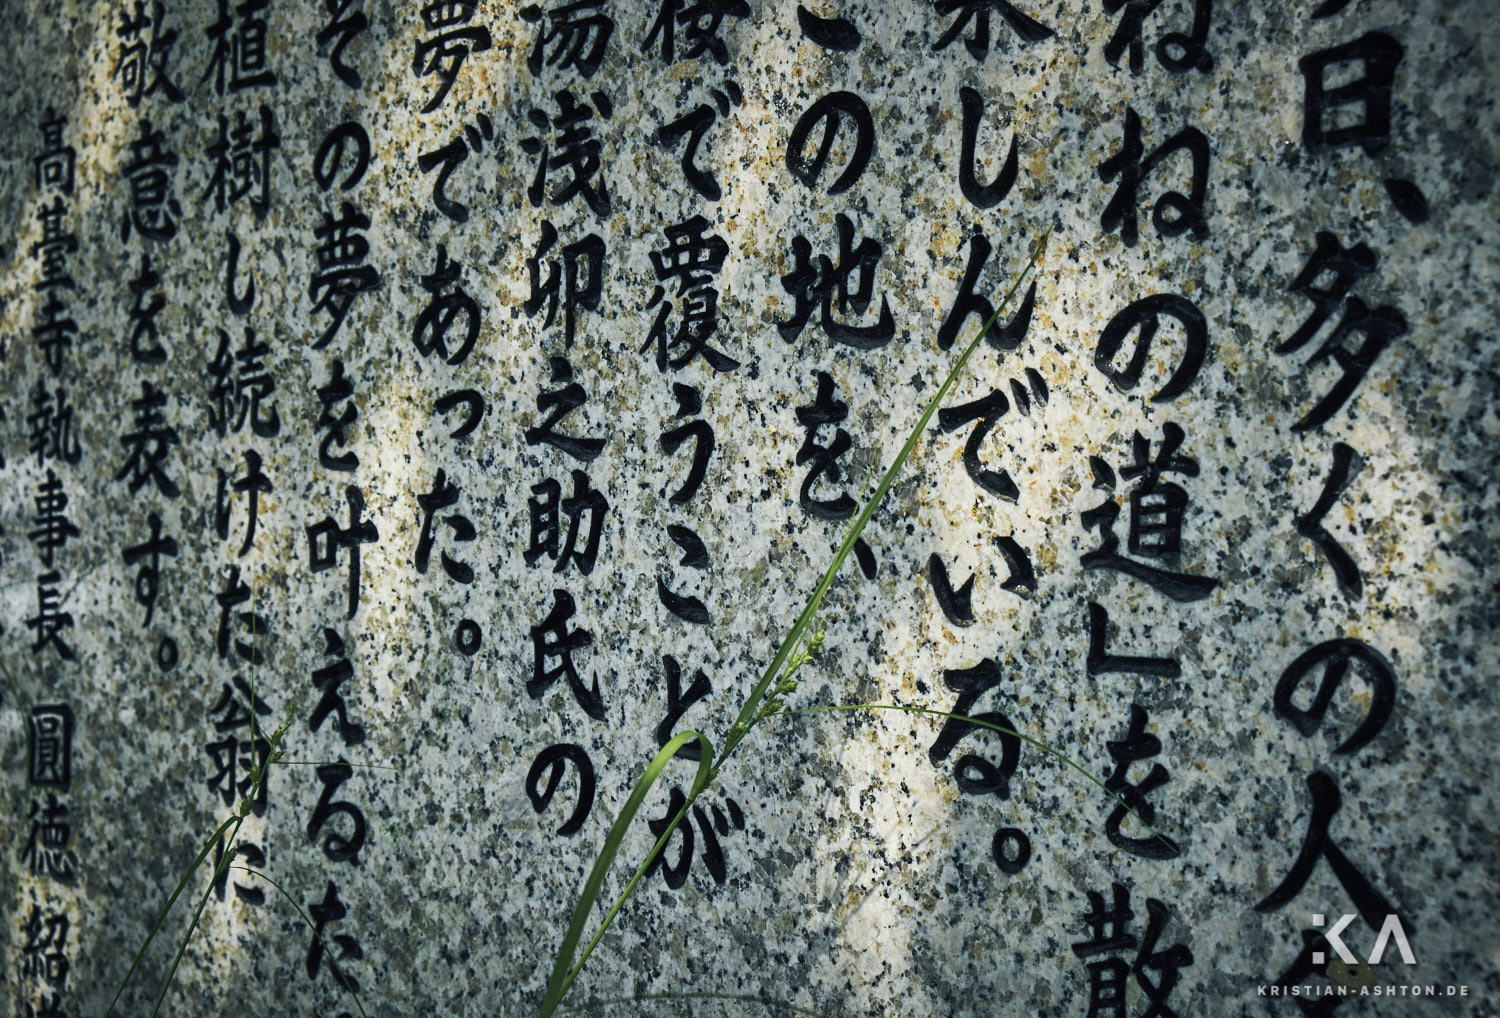 日、多くの人
ねねの道」を散
楽しんでいる。
この地を、
桜で覆うことが
湯浅卯之助氏の
夢であった。
その夢を叶えるた
植樹し続けた翁に
敬意を表す。
高臺寺執事長 圓徳 紹
KA
KRISTIAN-ASHTON.DE